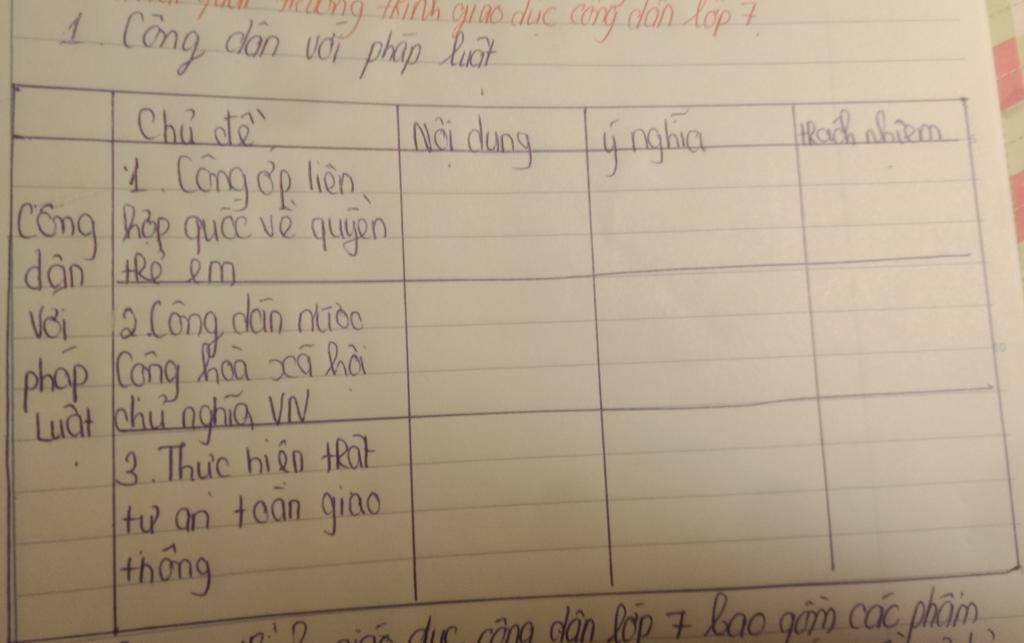 trình giáo dục công dân lớp 7.
1. Công dân với pháp luật
Chủ đề
Nội dung
ý nghĩa
trách nhiệm
Công dân với pháp luật
1. Công ớp liên
hợp quốc về quyền
trẻ em
2. Công dân nước
Cộng hoà xã hội
chủ nghĩa VN
3. Thực hiện trật
tự an toàn giao
thông
giáo dục công dân lớp 7 bao gồm các phẩm